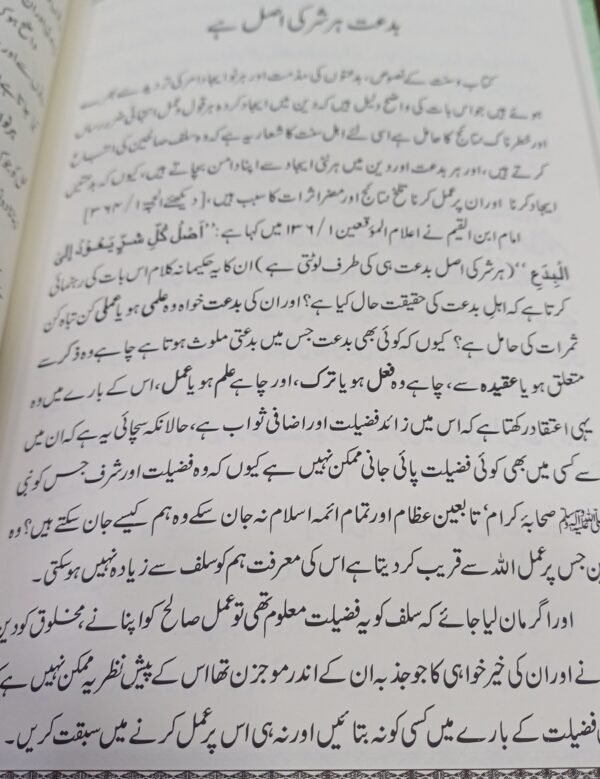 بدعت ہر شر کی اصل ہے
کتاب و سنت کے نصوص، بدعتوں کی مذمت اور ہر نو ایجاد امر کی تردید سے بھرے
ہوئے ہیں جو اس بات کی واضح دلیل ہیں کہ دین میں ایجاد کردہ ہر قول و عمل انتہائی ضرر رساں
اور خطرناک نتائج کا حامل ہے اسی لئے اہل سنت کا شعار یہ ہے کہ وہ سلف صالحین کی اتباع
کرتے ہیں، اور ہر بدعت اور دین میں ہر نئی ایجاد سے اپنا دامن بچاتے ہیں، کیوں کہ بدعتیں
ایجاد کرنا اور ان پر عمل کرنا تلخ نتائج اور مضر اثرات کا سبب ہیں، [دیکھئے الحجۃ ۱/۳۶۴]
امام ابن القیم نے اعلام المؤقعین ۱/۱۳۶ میں کہا ہے: ’’أَصْلُ كُلِّ شَرٍّ يَعُودُ إِلَى
الْبِدَعِ‘‘ (ہر شر کی اصل بدعت ہی کی طرف لوٹتی ہے) ان کا یہ حکیمانہ کلام اس بات کی رہنمائی
کرتا ہے کہ اہل بدعت کی حقیقت حال کیا ہے؟ اور ان کی بدعت خواہ وہ علمی ہو یا عملی کن تباہ کن
ثمرات کی حامل ہے؟ کیوں کہ کوئی بھی بدعت جس میں بدعتی ملوث ہوتا ہے چاہے وہ ذکر سے
متعلق ہو یا عقیدہ سے، چاہے وہ فعل ہو یا ترک، اور چاہے علم ہو یا عمل، اس کے بارے میں وہ
یہی اعتقاد رکھتا ہے کہ اس میں زائد فضیلت اور اضافی ثواب ہے، حالانکہ سچائی یہ ہے کہ ان میں
سے کسی میں بھی کوئی فضیلت پائی جانی ممکن نہیں ہے کیوں کہ وہ فضیلت اور شرف جس کو نبی
ﷺ صحابۂ کرام، تابعین عظام اور تمام ائمہ اسلام نہ جان سکے وہ ہم کیسے جان سکتے ہیں؟ وہ
جس پر عمل اللہ سے قریب کر دیتا ہے اس کی معرفت ہم کو سلف سے زیادہ نہیں ہو سکتی۔
اور اگر مان لیا جائے کہ سلف کو یہ فضیلت معلوم تھی تو عمل صالح کو اپنانے، مخلوق کو دین
نے اور ان کی خیر خواہی کا جو جذبہ ان کے اندر موجزن تھا اس کے پیش نظر یہ ممکن نہیں ہے کہ
فضیلت کے بارے میں کسی کو نہ بتائیں اور نہ ہی اس پر عمل کرنے میں سبقت کریں۔